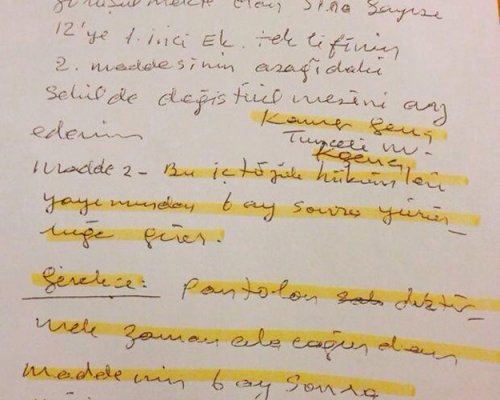 görüşülmekte olan sıra sayısı
12'ye 1. inci Ek. teklifinin
2. maddesinin aşağıdaki
şekilde değiştirilmesini arz
ederim
Kamer Genç
Tunceli
KGenç
Madde 2- Bu içtüzük hükümleri
yayımından 6 ay sonra yürür-
lüğe girer.
Gerekçe: Pantolon diktir-
mek zaman alacağından
maddenin 6 ay sonra